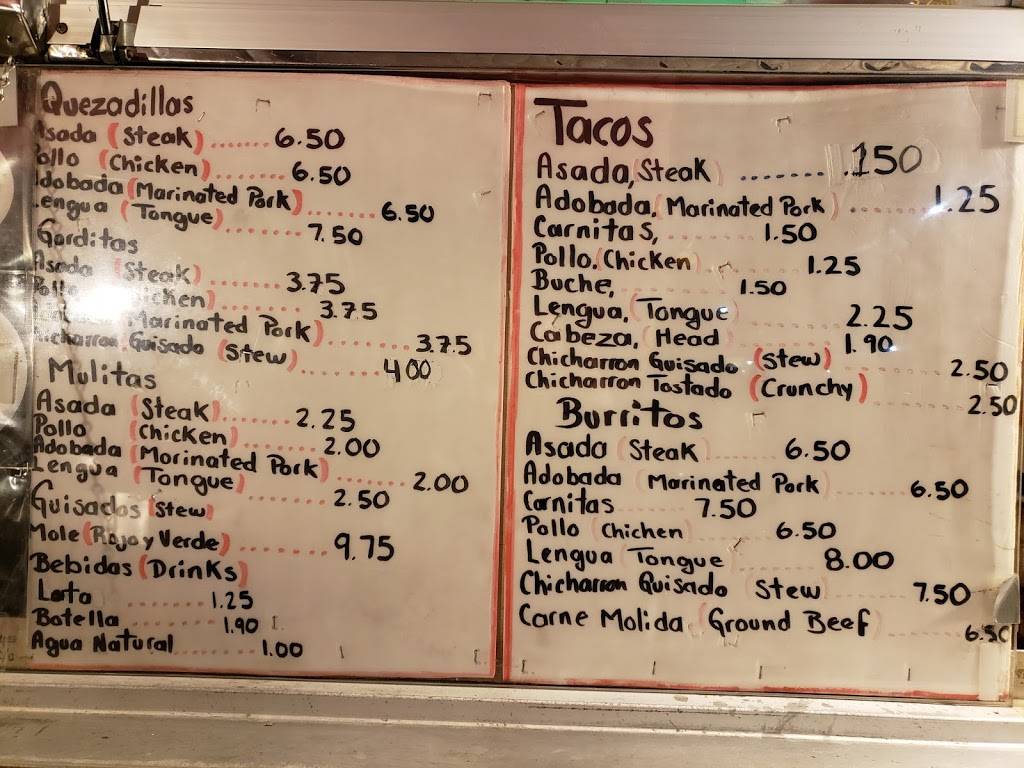 Quezadillas
Asada (Steak) ....... 6.50
Pollo (Chicken) ........ 6.50
Adobada (Marinated Pork) ....... 6.50
Lengua (Tongue) ........ 7.50
Gorditas
Asada (Steak) ....... 3.75
Pollo (Chicken) ........ 3.75
Marinated Pork) ....... 3.75
Chicharron Guisado (Stew) ........ 4.00
Mulitas
Asada (Steak) ...... 2.25
Pollo (Chicken) ....... 2.00
Adobada (Morinated Pork) ....... 2.00
Lengua (Tongue) ........ 2.50
Guisados (Stew)
Mole (Rojo y Verde) ........ 9.75
Bebidas (Drinks)
Lata ........ 1.25
Botella ........ 1.90
Agua Natural ........ 1.00
Tacos
Asada, (Steak) ........ .150
Adobada, (Marinated Pork) ....... 1.25
Carnitas, ........ 1.50
Pollo, (Chicken) ........ 1.25
Buche, ........ 1.50
Lengua, (Tongue) ........ 2.25
Cabeza, (Head) ........ 1.90
Chicharron Guisado (Stew) ........ 2.50
Chicharron Tostado (Crunchy) ........ 2.50
Burritos
Asada (Steak) ....... 6.50
Adobada (Marinated Pork) ....... 6.50
Carnitas ....... 7.50
Pollo (Chichen) ....... 6.50
Lengua (Tongue) ....... 8.00
Chicharron Guisado (Stew) ....... 7.50
Carne Molida (Ground Beef) ....... 6.50